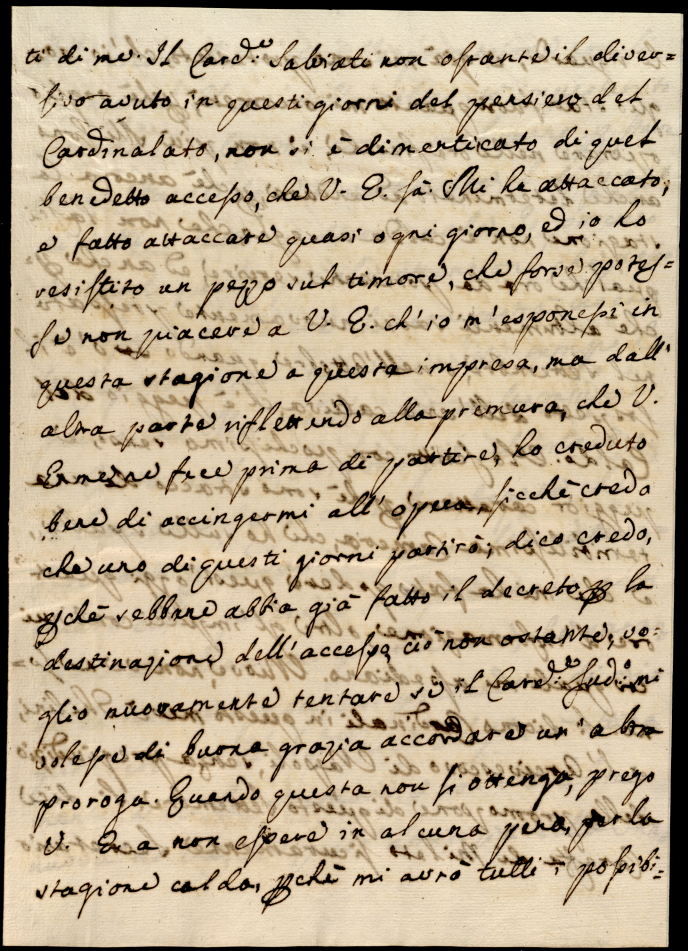 ti di me. Il Card.e Salviati non ostante il diver=
sivo avuto in questi giorni del pensiero del
Cardinalato, non si è dimenticato di quel
benedetto accesso, che V. E. sà. Mi ha attaccato,
e fatto attaccare quasi ogni giorno, ed io ho
resistito un pezzo sul timore, che forse potes=
se non piacere a V. E. ch'io m'esponessi in
questa stagione a questa impresa, ma dall'
altra parte riflettendo alla premura, che V.
fece prima di partire, ho creduto
bene di accingermi all'opera, sicchè credo
che uno di questi giorni partirò; dico credo,
pchè sebbene abbia già fatto il decreto p la
destinazione dell'accesso, ciò non ostante, vo=
glio nuovamente tentare se il Card.e Sud.o mi
volesse di buona grazia accordare un'altra
proroga. Quando questa non si ottenga, prego
V. E. a non essere in alcuna pena, per la
stagione calda, pchè mi avrò tutti i possibi=